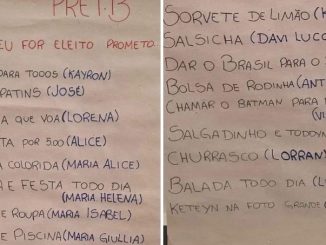 PRE 1.B
EU FOR ELEITO PROMETO...
PARA TODOS (KAYRON)
PATINS (JOSÉ)
A QUE VOA (LORENA)
TA POR 500 (ALICE)
A COLORIDA (MARIA ALICE)
A E FESTA TODO DIA
(MARIA HELENA)
E ROUPA (MARIA ISABEL)
E PISCINA (MARIA GIULLIA)
SORVETE DE LIMÃO
SALSICHA (DAVI LUCC
DAR O BRASIL PARA O
BOLSA DE RODINHA (ANT
CHAMAR O BATMAN PARA
(VI
SALGADINHO E TODDYN
CHURRASCO (LORRAN
BALADA TODO DIA (L
KETEYN NA FOTO GRANDE